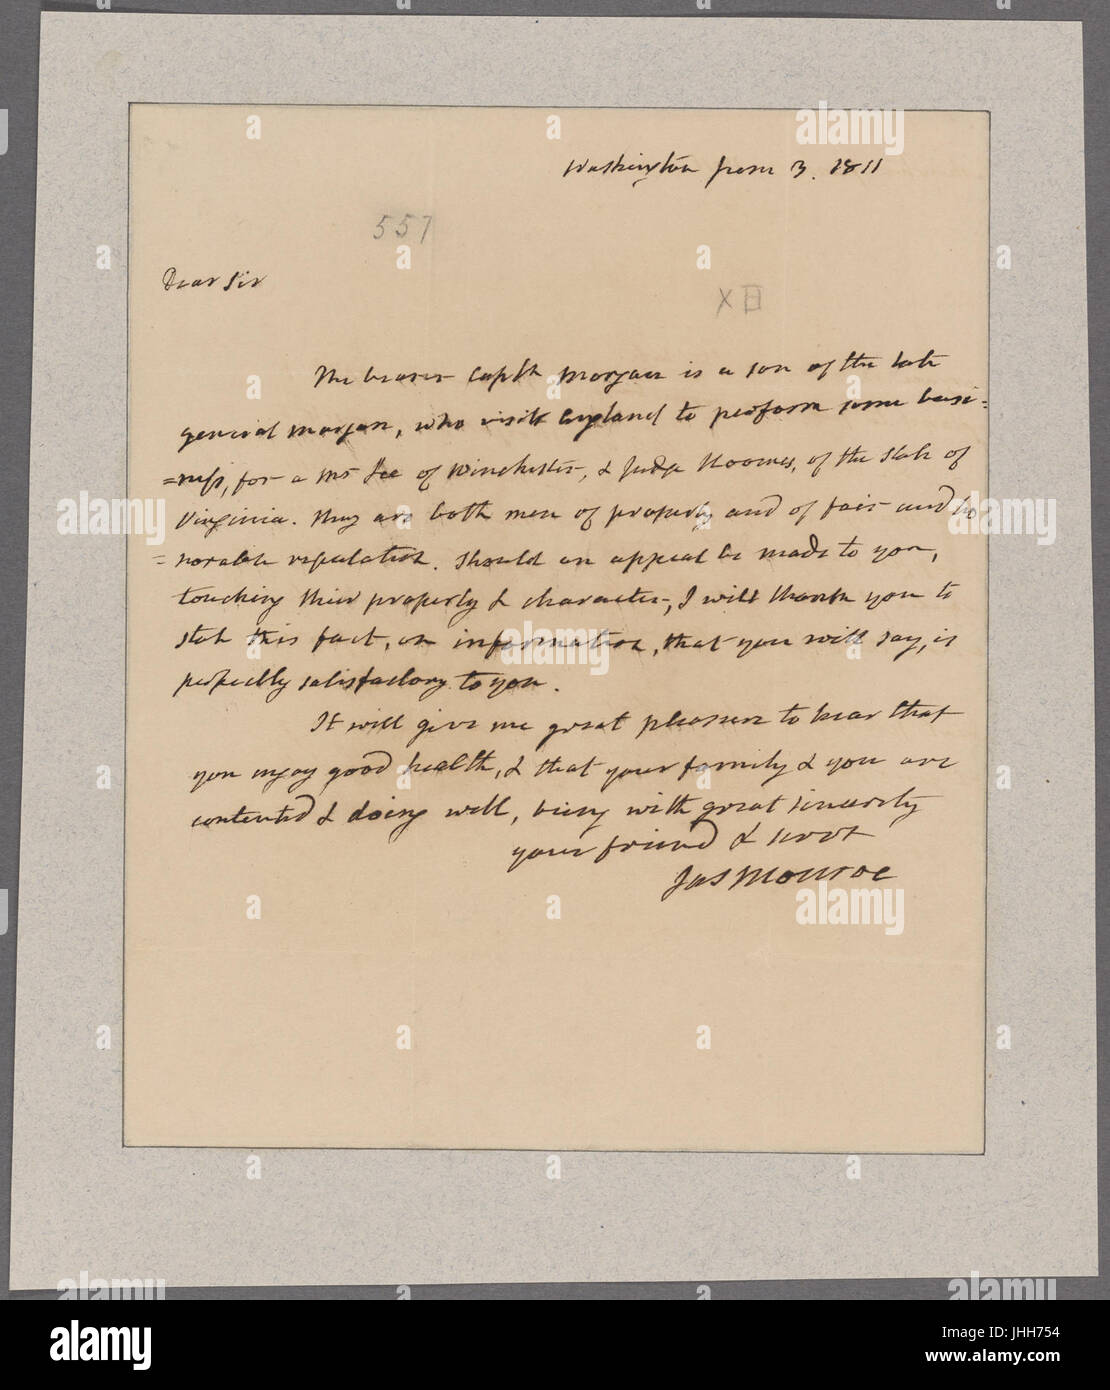 Washington June 3. 1811
557
Dear Sir
X
The bearer Captn Morgan is a son of the late
general Morgan, who visits England to perform some busi=
=ness, for a Mr Lee of Winchester, & Judge Hoomes, of the State of
Virginia. They are both men of property and of fair and ho
=norable reputation. Should an appeal be made to you,
touching their property & character, I will thank you to
state this fact, on information, that you will say, is
perfectly satisfactory to you.
It will give me great pleasure to hear that
you enjoy good health, & that your family & you are
contented & doing well, being with great sincerity
your friend & servt
Jas Monroe
alamy
Image ID: JHH754
www.alamy.com